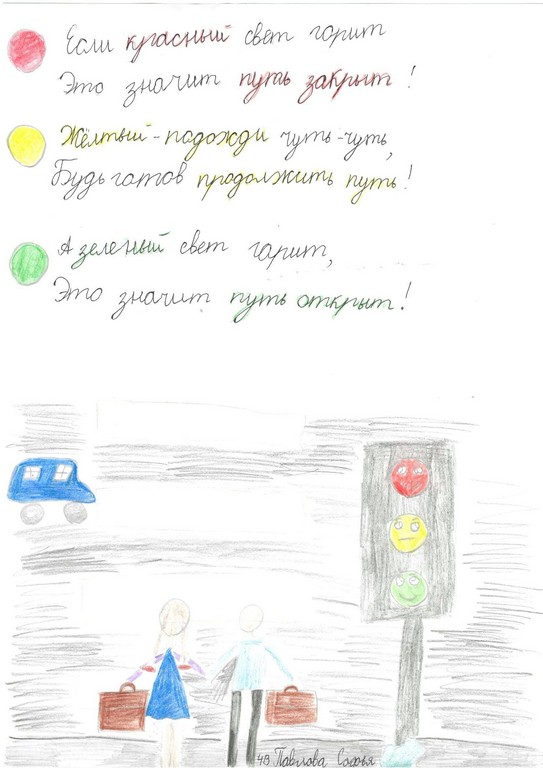 Если красный свет горит
Это значит путь закрыт!
Жёлтый - подожди чуть-чуть,
Будь готов продолжить путь!
А зеленый свет горит,
Это значит путь открыт!
4В Павлова Софья